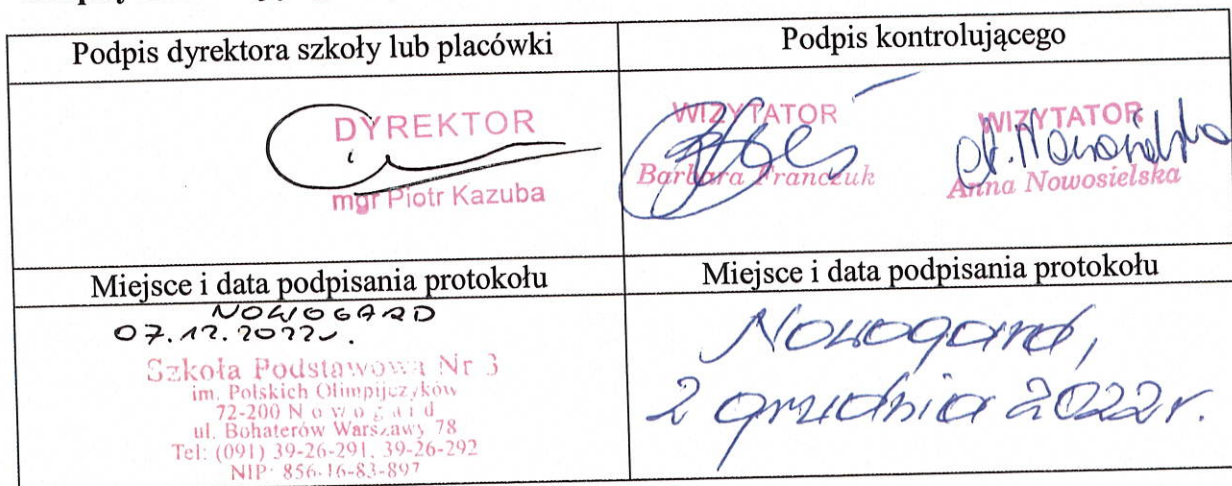 Podpis dyrektora szkoły lub placówki
Podpis kontrolującego
DYREKTOR
mgr Piotr Kazuba
WIZYTATOR
Barbara Franczuk
WIZYTATOR
A. Nowosielska
Anna Nowosielska
Miejsce i data podpisania protokołu
Miejsce i data podpisania protokołu
NOWOGARD
07.12.2022r.
Szkoła Podstawowa Nr 3
im. Polskich Olimpijczyków
72-200 Nowogard
ul. Bohaterów Warszawy 78
Tel: (091) 39-26-291, 39-26-292
NIP: 856-16-83-897
Nowogard,
2 grudnia 2022r.